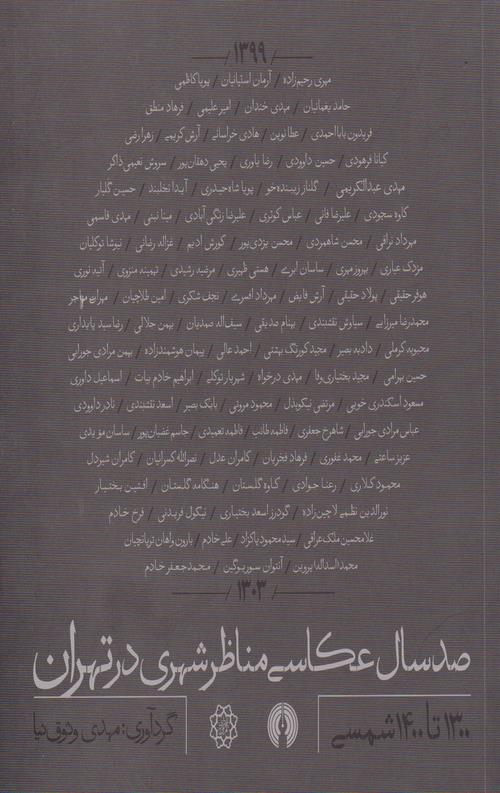 ۱۳۹۹
مهری رحیم‌زاده / آرمان استپانیان / پویا کاظمی
حامد یغمائیان / مهدی خندان / امیر علیمی / فرهاد منطق
فریدون بابااحمدی / عطا نوین / هادی خراسانی / آرش کریمی / زهرا رضی
کیانا فرهودی / حسین داوودی / رضا یاوری / یحیی دهقان‌پور / سروش نعیمی ذاکر
مهدی عبدالکریمی / گلناز زیبنده‌خو / پویا شاه‌حیدری / آیدا نخلبند / حسین گلیار
کاوه سجودی / علیرضا فانی / عباس کوثری / علیرضا زنگی آبادی / مینا نبئی / مهدی قاسمی
مهرداد نراقی / محسن شاهمردی / محسن یزدی‌پور / کورش ادیم / غزاله رضائی / نیوشا توکلیان
مزدک عیاری / بهروز مهری / ساسان ابری / هستی ظهیری / مرضیه رشیدی / تهمینه منزوی / آتیه نوری
هوفر حقیقی / پولاد حقیقی / آرش فایض / مهرداد افسری / نجف شکری / امین طلاچیان / مهران مهاجر
محمدرضا میرزایی / سیاوش نقشبندی / بهنام صدیقی / سیف‌اله صمدیان / بهمن جلالی / رضا سید پایداری
محبوبه کرملی / دادبه بصیر / مجید کورنگ بهشتی / احمد عالی / پیمان هوشمندزاده / بهمن مرادی جورابی
حسین بهرامی / مجید بختیاری‌وفا / مهدی درخواه / شهریار توکلی / ابراهیم خادم بیات / اسماعیل داوری
مسعود اسکندری خویی / مرتضی نیکوبذل / محمود مروتی / بابک بصیر / اسعد نقشبندی / نادر داوودی
عباس مرادی جورابی / شاهرخ جعفری / فاطمه طالب / فاطمه تعمیدی / جاسم غضبان‌پور / ساسان مؤیدی
عزیز ساعتی / محمد غفوری / فرهاد فخریان / کامران عدل / نصرالله کسرائیان / کامران شیردل
محمود کلاری / رعنا جوادی / کاوه گلستان / هنگامه گلستان / افشین بختیار
نورالدین نظمی لاچین‌زاده / گودرز اسعد بختیاری / نیکول فریدنی / فرخ خادم
غلامحسین ملک‌عراقی / سید محمود پاکزاد / علی خادم / بارون واهان تریانچیان
محمد اسدالدا پروین / آنتوان سوریوگین / محمدجعفر خادم
۱۳۰۳
صد سال عکاسی مناظر شهری در تهران
۱۳۰۰ تا ۱۴۰۰ شمسی
گردآوری: مهدی وثوق‌نیا